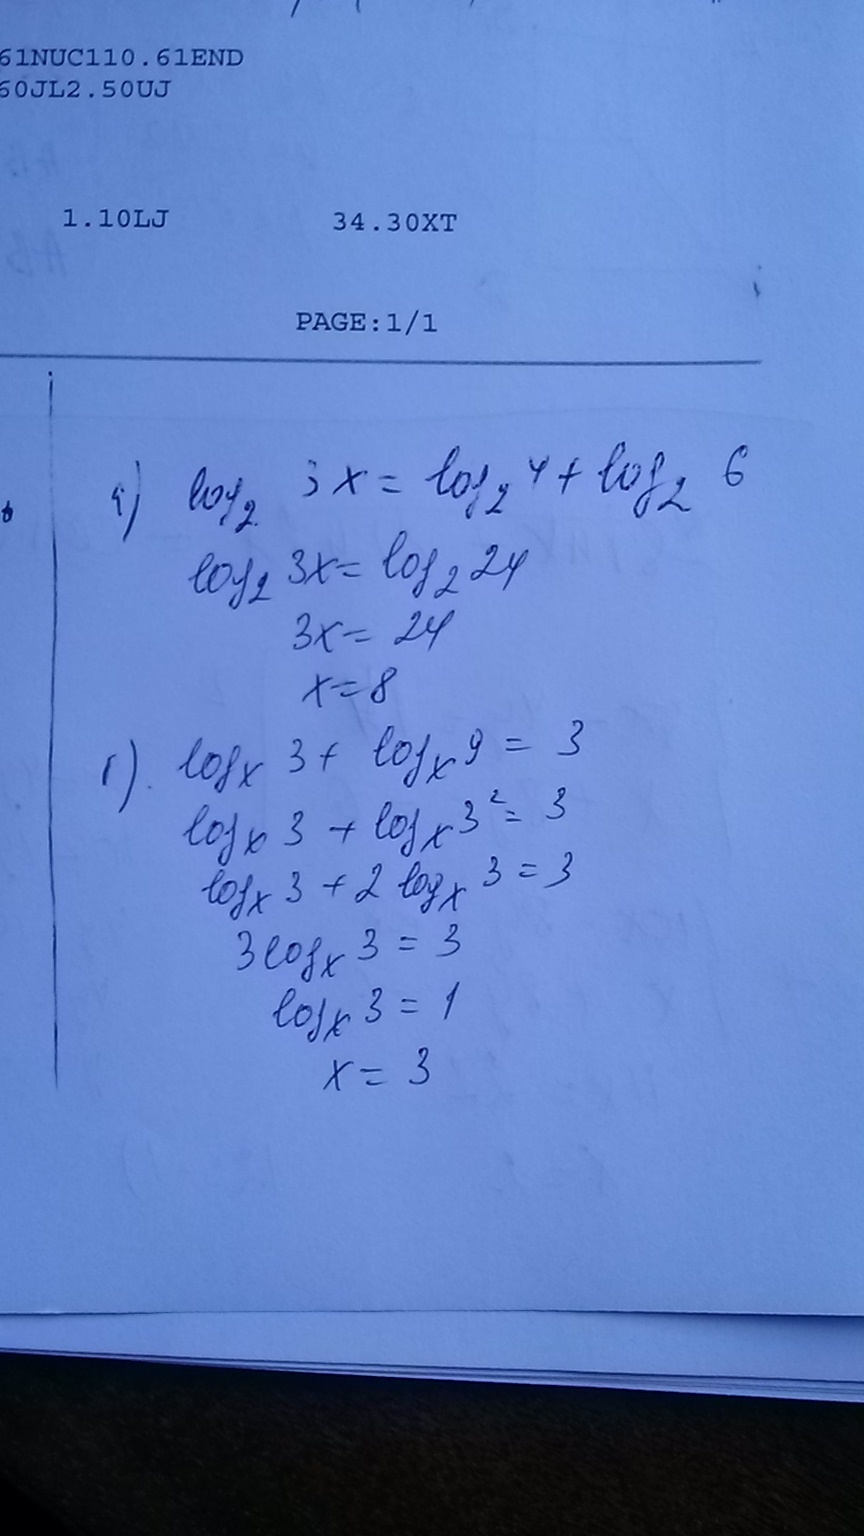 61NUC110.61END
60JL2.50UJ
1.10LJ 34.30XT
PAGE:1/1
log₂ 3x = log₂ 4 + log₂ 6
log₂ 3x = log₂ 24
3x = 24
x = 8
logₓ 3 + logₓ 9 = 3
logₓ 3 + logₓ 3² = 3
logₓ 3 + 2 logₓ 3 = 3
3 logₓ 3 = 3
logₓ 3 = 1
x = 3